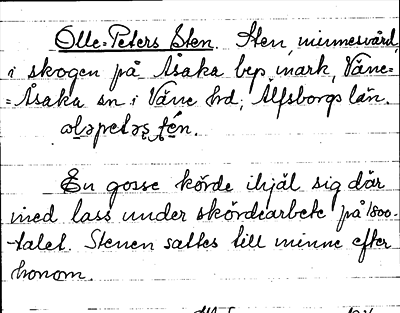 Olle-Peters Sten. Sten, minnesvård,
i skogen på Åsaka byp. mark, Väne-
=Åsaka sn i Väne hd, Älfsborgs län.
En gosse körde ihjäl sig där
med lass under skördearbete på 1800-
-talet. Stenen sattes till minne efter
honom.